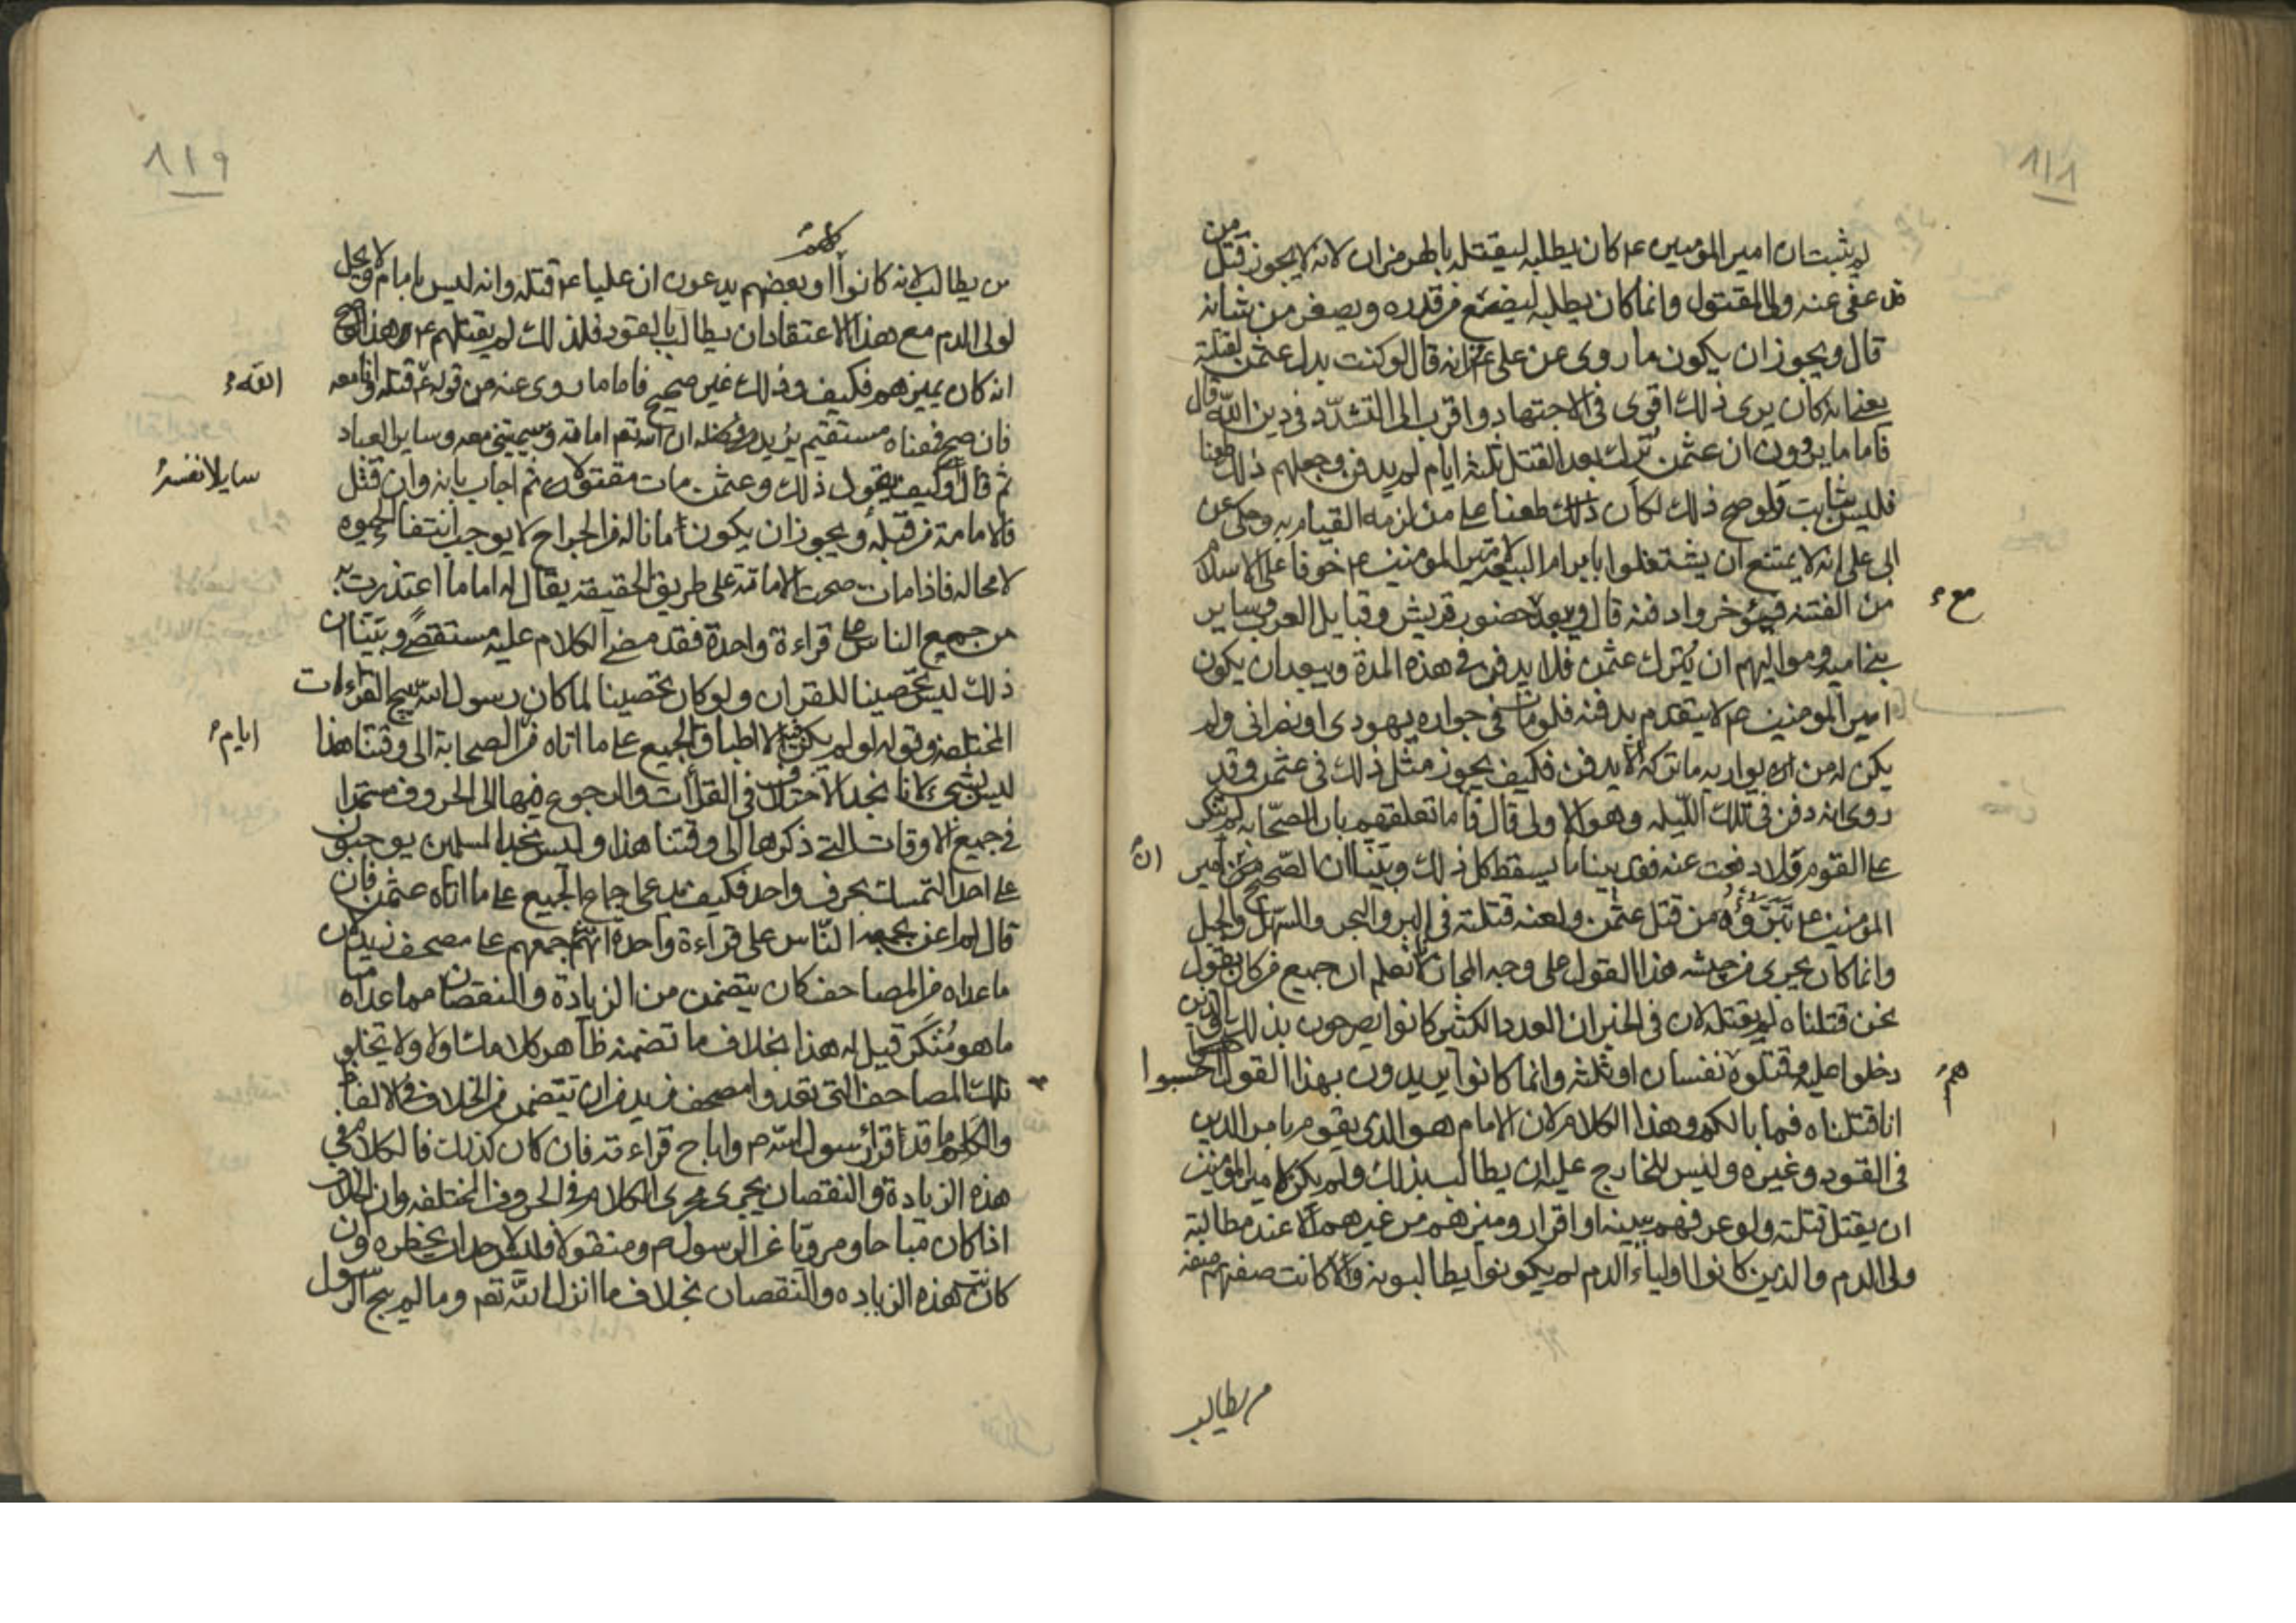 ٨١٨
لم يثبت ان امير المؤمنين ع كان يطلبه ليقتله بالهرمزان لانه لا يجوز قتل من
قد عفى عنه ولى المقتول وانما كان يطلبه ليضع من قدره ويصغر من شانه
قال ويجوز ان يكون ما روى عن على ع انه قال لو كنت بدل عثمن لقتلته
يعنى انه كان يرى ذلك اقوى فى الاجتهاد واقرب الى التشدّد فى دين اللّه قال
فاما ما يروون ان عثمن تُرك بعد القتل ثلثة ايام لم يدفن وجعلهم ذلك طعنا
فليس بثابت ولو صح ذلك لكان ذلك طعنا على من لزمه القيام به وحكى عن
ابى على انه لا يمتنع ان يشتغلوا بابرام البيعة لامير المؤمنين ع خوفا على الاسلام
من الفتنة فيؤخروا دفنه قال وبعيد حضور قريش وقبايل العرب وساير
مع
بنى امية ومواليهم ان يُترك عثمن فلا يدفن فى هذه المدة وبيعد ان يكون
امير المومنين ع لا يتقدم بدفنه فلو مات فى جواره يهودى او نصرانى ولم
يكن له من يواريه ما تركه الا يدفن فكيف يجوز مثل ذلك فى عثمن وقد
روى انه دفن فى تلك اللّيله وهو الاولى قال فاما تعلقهم بان الصّحابه لم تنكر
على القوم ولا دفعت عنه فقد بينا ما يسقط كل ذلك وبيّنا ان الصّحيح عن امير
ان
المؤمنين ع تَبَرُّؤُهُ من قتل عثمن ولعنه قتلته فى البر والبحر والسّهل والجبل
وانما كان يجرى من جيشه هذا القول على وجه المجاز لانا نعلم ان جميع من كان يقول
نحن قتلناه لم يقتله لان فى الخبر ان العدد الكثير كانوا يصرحون بذلك والذين
دخلوا عليه وقتلوه نفسان او ثلثة وانما كانوا يريدون بهذا القول احسبوا
هم
انا قتلناه فما بالكم وهذا الكلام لان الامام هو الذى يقوم بامر الدين
فى القود وغيره وليس للخارج عليه ان يطالب بذلك ولم يكن لامير المؤمنين
ان يقتل قتلته ولو عرفهم ببينه او اقرار وميزهم من غيرهم الا عند مطالبة
ولى الدم والذين كانوا اولياء الدم لم يكونوا يطالبونه ولا كانت صفتهم صفة
من يطالب
٨١٩
من يطالب لانه كانوا او بعضهم يدعون ان عليا ع قتله وانه ليس بامام ولا يحل
كلهم
لولى الدم مع هذا الاعتقاد ان يطالب بالقود فلذلك لم يقتلهم ع هذا لو صح
انه كان يميزهم فكيف وذلك غير صحيح فاما ما روى عنه من قوله ع قتله وانا معه
اللّه
فان صح فمعناه مستقيم يريد ان اللّه تع اماته وسيميتنى معه وساير العباد
ثم قال وكيف يقول ذلك وعثمن مات مقتولا ثم اجاب بانه وان قتل
سايلا نفسه
فالاماتة من قبله ويجوز ان يكون ما ناله من الجراح لا يوجب انتفاء الحيوه
لا محاله فاذا مات صحت الاماتة على طريق الحقيقة يقال له اما ما اعتذرت به
من جميع الناس على قراءة واحدة فقد مضى الكلام عليه مستقصىً وبيّنا ان
ذلك ليس تحصينا للقران ولو كان تحصينا لما كان رسول اللّه يبيح القراءات
المختلفة وقوله لو لم يكن فيه الا اطباق الجميع على ما اتاه من الصحابة الى وقتنا هذا
ايام
ليس بشىء لانا نجد الاختلاف فى القراات والرجوع فيها الى الحروف مستمرا
فى جميع الاوقات التى ذكرها الى وقتنا هذا وليس نجد المسلمين يوجبون
على احد التمسك بحرف واحد فكيف يدعى اجماع الجميع على ما اتاه عثمن فان
قال لم اعن بجمعه النّاس على قراءة واحدة الا انه جمعهم على مصحف زيد لان
ما عداه من المصاحف كان يتضمن من الزيادة والنقصان مما عداه ما
ما هو مُنكر قيل له هذا بخلاف ما تضمنه ظاهر كلامك اولا ولا تخلو
تلك المصاحف التى تعدوا مصحف زيد من ان تتضمن من الخلاف فى الالفاظ
والكلم ما قد اقر رسول اللّه ص واباح قراءته فان كان كذلك فالكلام فى
هذه الزيادة والنقصان يجرى مجرى الكلام فى الحروف المختلفه وان الخلاف
اذا كان مباحا ومرويا عن الرسول ص ومنقولا فليس لاحد ان يحظره وان
كانت هذه الزياده والنقصان بخلاف ما انزل اللّه تع وما لم يبح الرسول